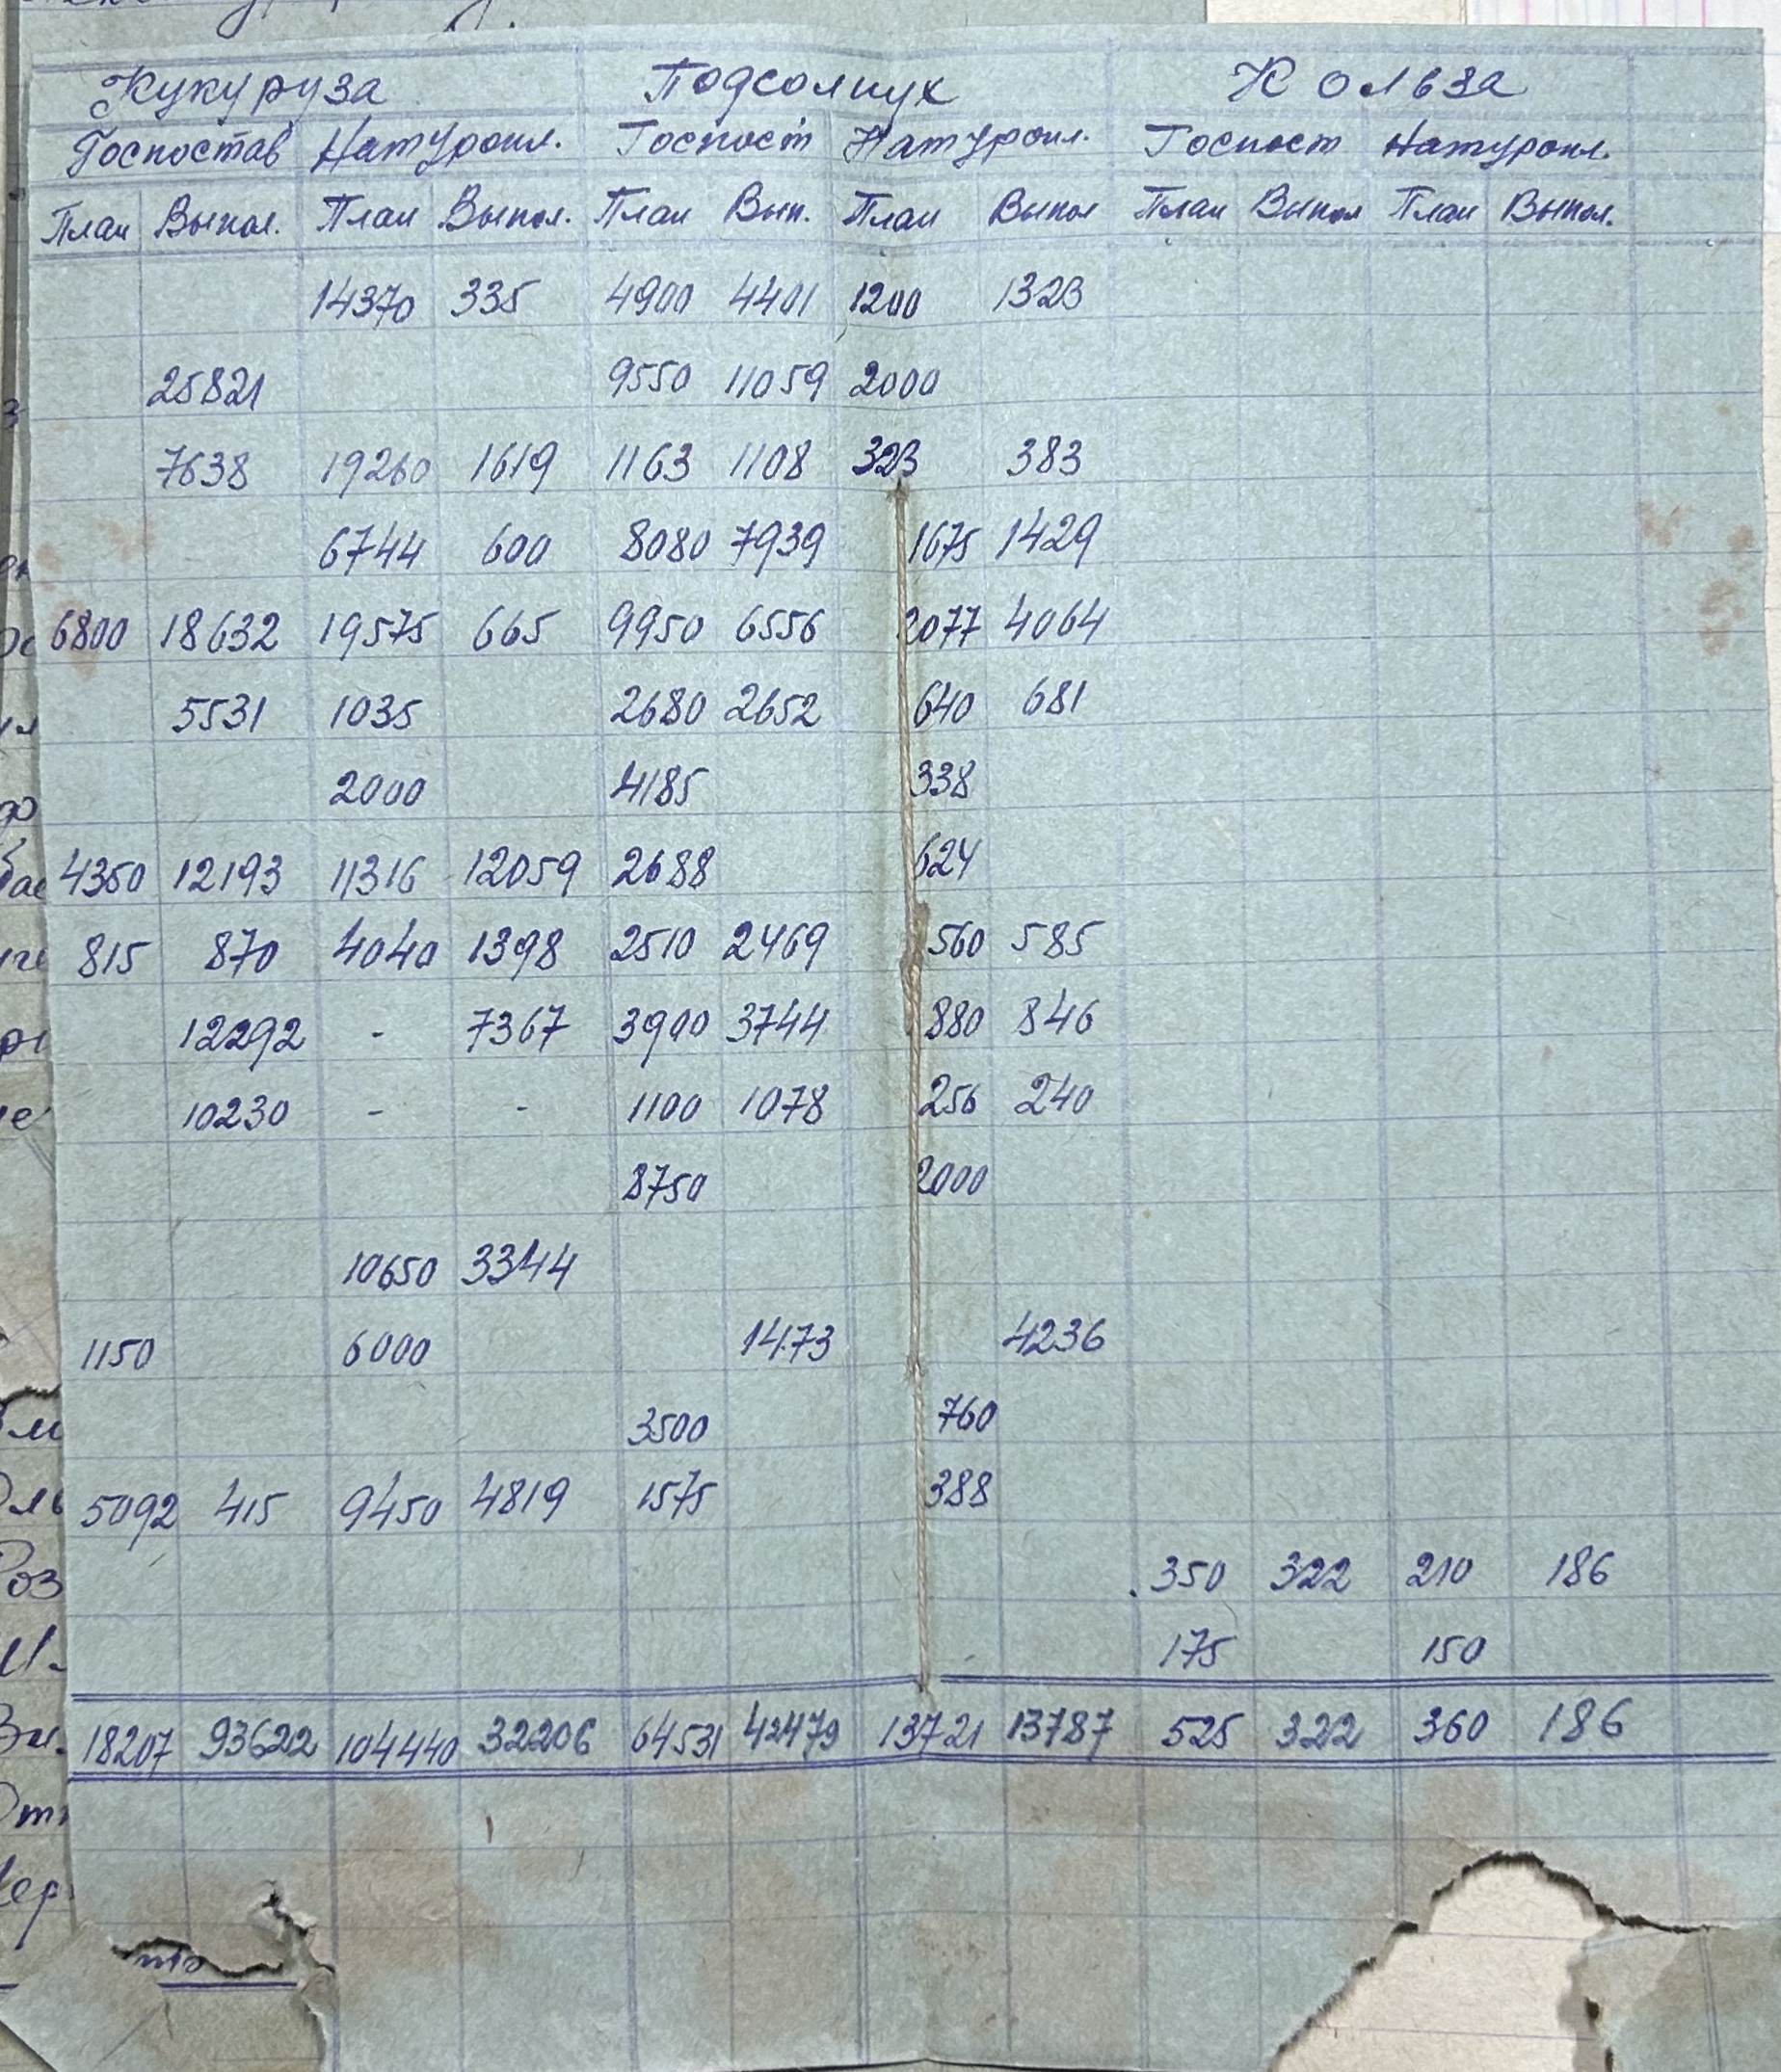 Кукуруза Подсолнух Кольза
Госпостав Натуропл. Госпост Натуропл. Госпост Натуропл.
План Выпол. План Выпол. План Вып. План Выпол План Выпол План Выпол.
14370 335 4900 4401 1200 1323
25821 9550 11059 2000
7638 19260 1619 1163 1108 323 383
6744 600 8080 7939 1675 1429
6800 18632 19575 665 9950 6556 2077 4064
5531 1035 2680 2652 640 681
2000 4185 338
4350 12193 11316 12059 2688 624
815 870 4040 1398 2510 2469 560 585
12292 - 7367 3900 3744 880 846
10230 - - 1100 1078 256 240
8750 2000
10650 3344
1150 6000 1473 4236
3500 760
5092 415 9450 4819 1575 388
350 322 210 186
175 150
18207 93622 104440 32206 64531 42479 13721 13787 525 322 360 186